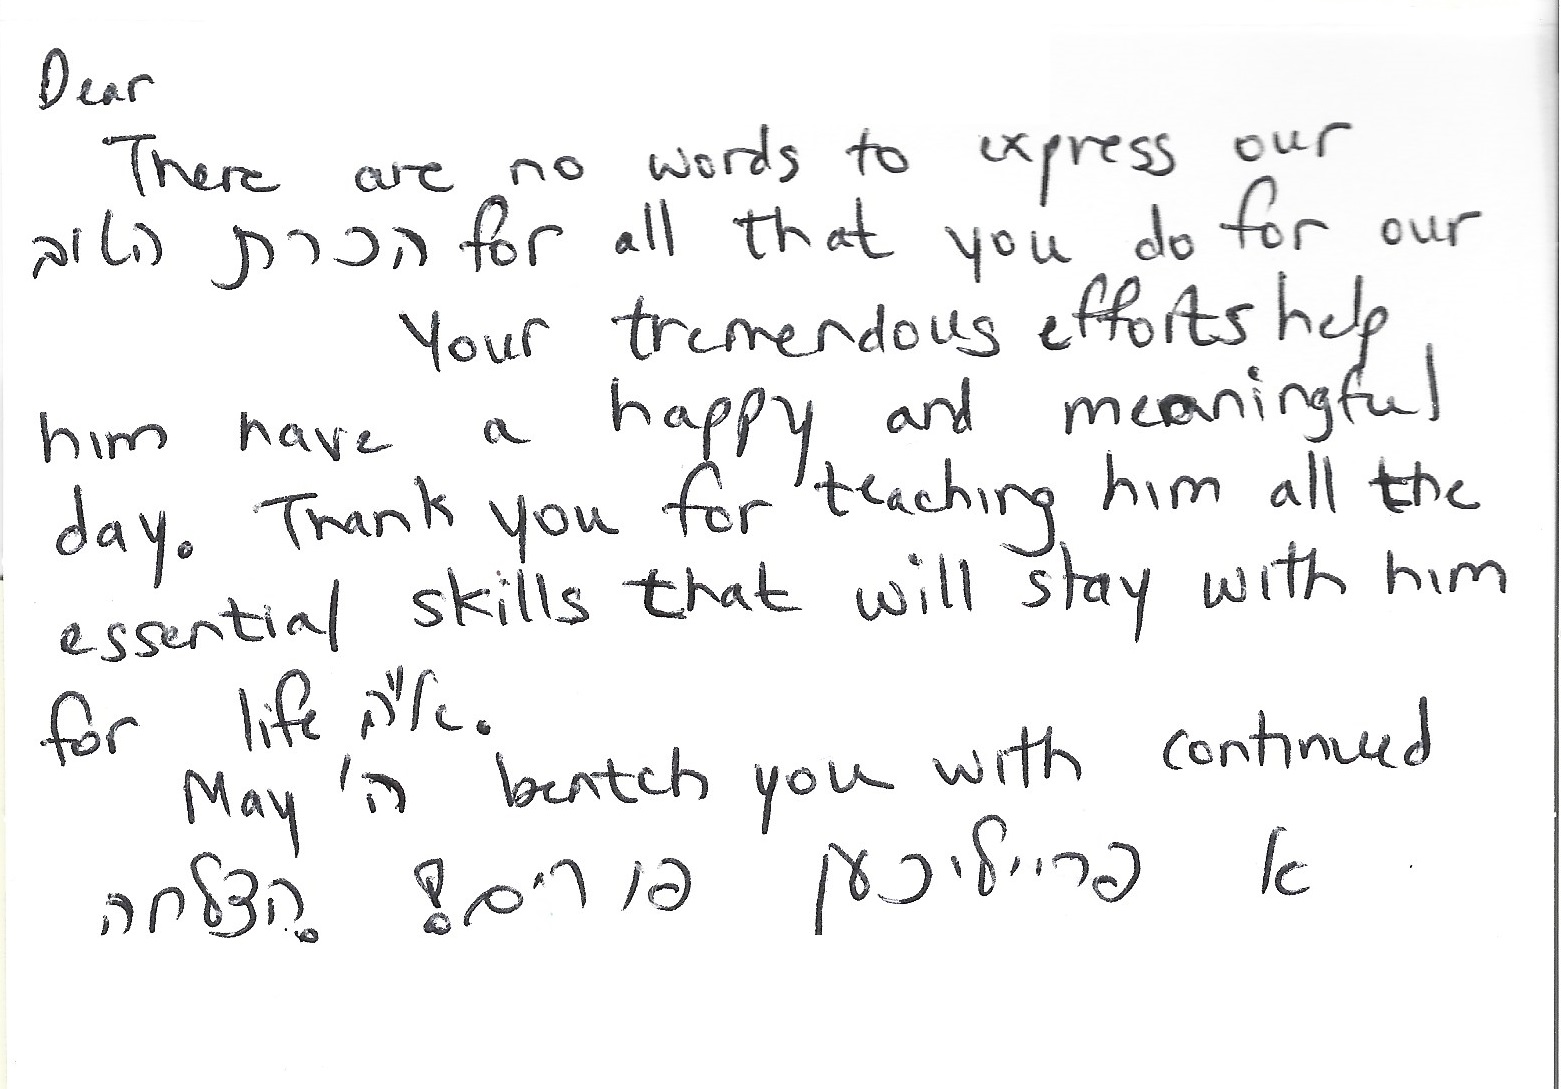 Dear
There are no words to express our
הכרת הטוב for all that you do for our
Your tremendous efforts help
him have a happy and meaningful
day. Thank you for teaching him all the
essential skills that will stay with him
for life אי"ה.
May ה' bentch you with continued
הצלחה. א פריילעכען פורים!